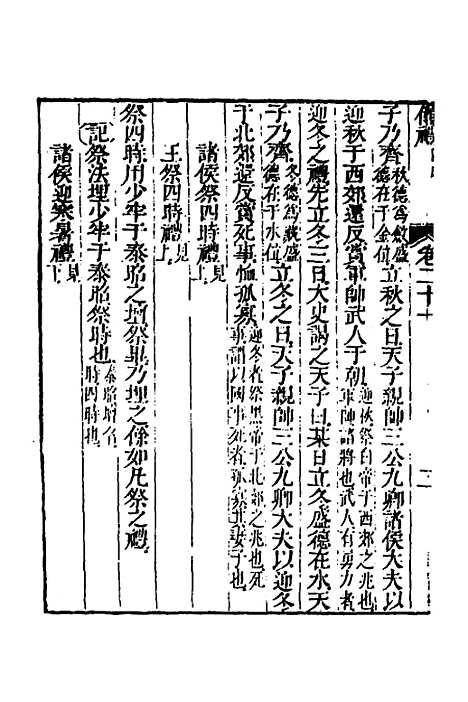 子乃齊秋德爲斂盛德在于金位立秋之日天子親帥三公九卿諸侯大夫以
迎秋于西郊還反賞軍帥武人于朝迎秋祭白帝于西郊之兆也軍帥諸將也武人有勇力者
迎冬之禮先立冬三日大史謁之天子曰某日立冬盛德在水天
子乃齊冬德爲藏盛德在于水位立冬之日天子親帥三公九卿大夫以迎冬
于北郊還反賞死事恤孤寡迎冬者祭黑帝于北郊之兆也死事謂以國事死者孤寡其妻子也
諸侯祭四時禮見上
王祭四時禮見上
祭四時用少牢于泰昭之壇祭畢乃埋之餘如凡祭之禮
記祭法埋少牢于泰昭祭時也泰昭壇名時四時也
諸侯迎寒暑禮見下
卷二十